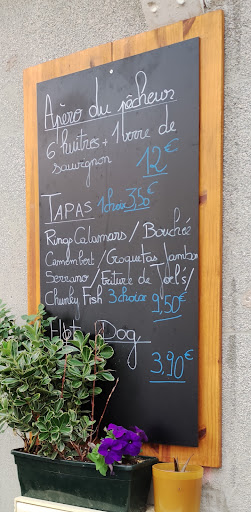 Apéro du pêcheur
6 huîtres + 1 verre de
sauvignon
12€
TAPAS 1 choix 3,50€
Rings Calamars / Bouchée
Camembert / Croquetas Jambon
Serrano / Friture de Joëls /
Chunky Fish 3 choix 9,50€
Dog
3.90€